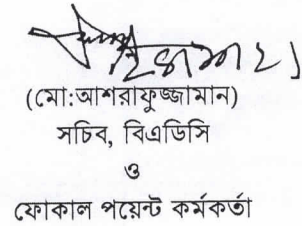 (মো:আশরাফুজ্জামান)
সচিব, বিএডিসি
ও
ফোকাল পয়েন্ট কর্মকর্তা